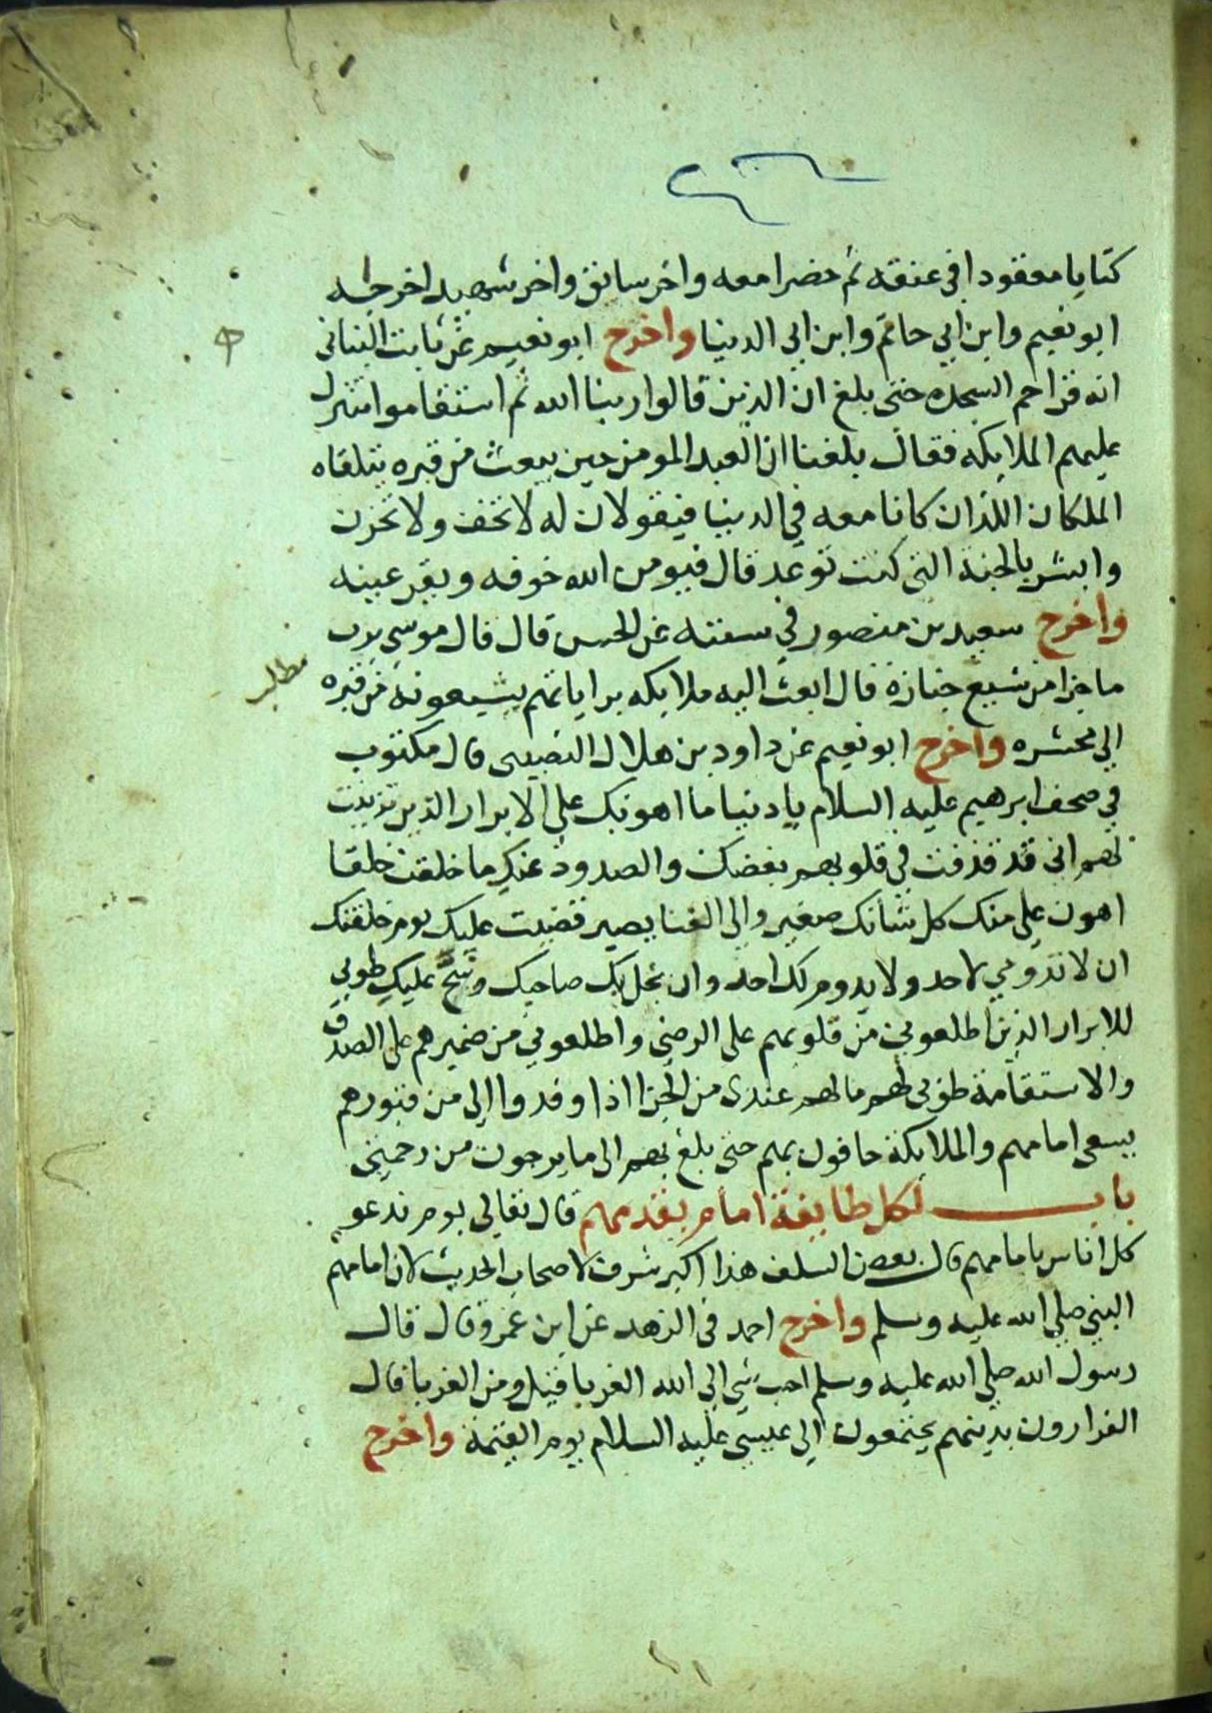 كتابا معقودا في عنقه ثم حضرا معه واخر سائق واخر شهيد اخرجه
ابو نعيم وابن ابي حاتم وابن ابي الدنيا واخرج ابو نعيم عن ثابت البناني
انه قرا حم السجده حتى بلغ ان الذين قالوا ربنا الله ثم استقاموا تتنزل
عليهم الملايكه فقال بلغنا ان العبد المومن حين يبعث من قبره يتلقاه
الملكان اللذان كانا معه في الدنيا فيقولان له لا تخف ولا تحزن
وابشر بالجنة التي كنت توعد قال فيومن الله خوفه ويقر عينه
واخرج سعيد بن منصور في سننه عن الحسن قال قال موسى يرب
مطلب
ما جزا من شيع جنازة قال ابعث اليه ملايكه براياتهم يشيعونه من قبره
الى محشره واخرج ابو نعيم عن داود بن هلال النصيبي قال مكتوب
في صحف ابرهيم عليه السلام يا دنيا ما اهونك على الابرار الذين تزينت
لهم اني قد قذفت في قلوبهم بغضك والصدود عنك ما خلقت خلقا
اهون علي منك كل شانك صغير والى الفنا يصير قضيت عليك يوم خلقتك
ان لا تدومي لاحد ولا يدوم لك احد وان بخل بك صاحبك وشح عليك طوبى
للابرار الذين اطلعوني من قلوبهم على الرضى واطلعوني من ضميرهم على الصدق
والاستقامة طوبى لهم ما لهم عندى من الجزا اذا وفدوا الي من قبورهم
يسعى امامهم والملايكة حافون بهم حتى بلغ بهم الى ما يرجون من رحمتي
باب لكل طايفة امام يقدمهم قال تعالى يوم ندعو
كل اناس بامامهم قال بعض السلف هذا اكبر شرف لاصحاب الحديث لان امامهم
النبي صلى الله عليه وسلم واخرج احمد في الزهد عن ابن عمرو قال قال
رسول الله صلى الله عليه وسلم احب شي الى الله الغربا قيل ومن الغربا قال
الفرارون بدينهم يجتمعون الى عيسى عليه السلام يوم القيمة واخرج